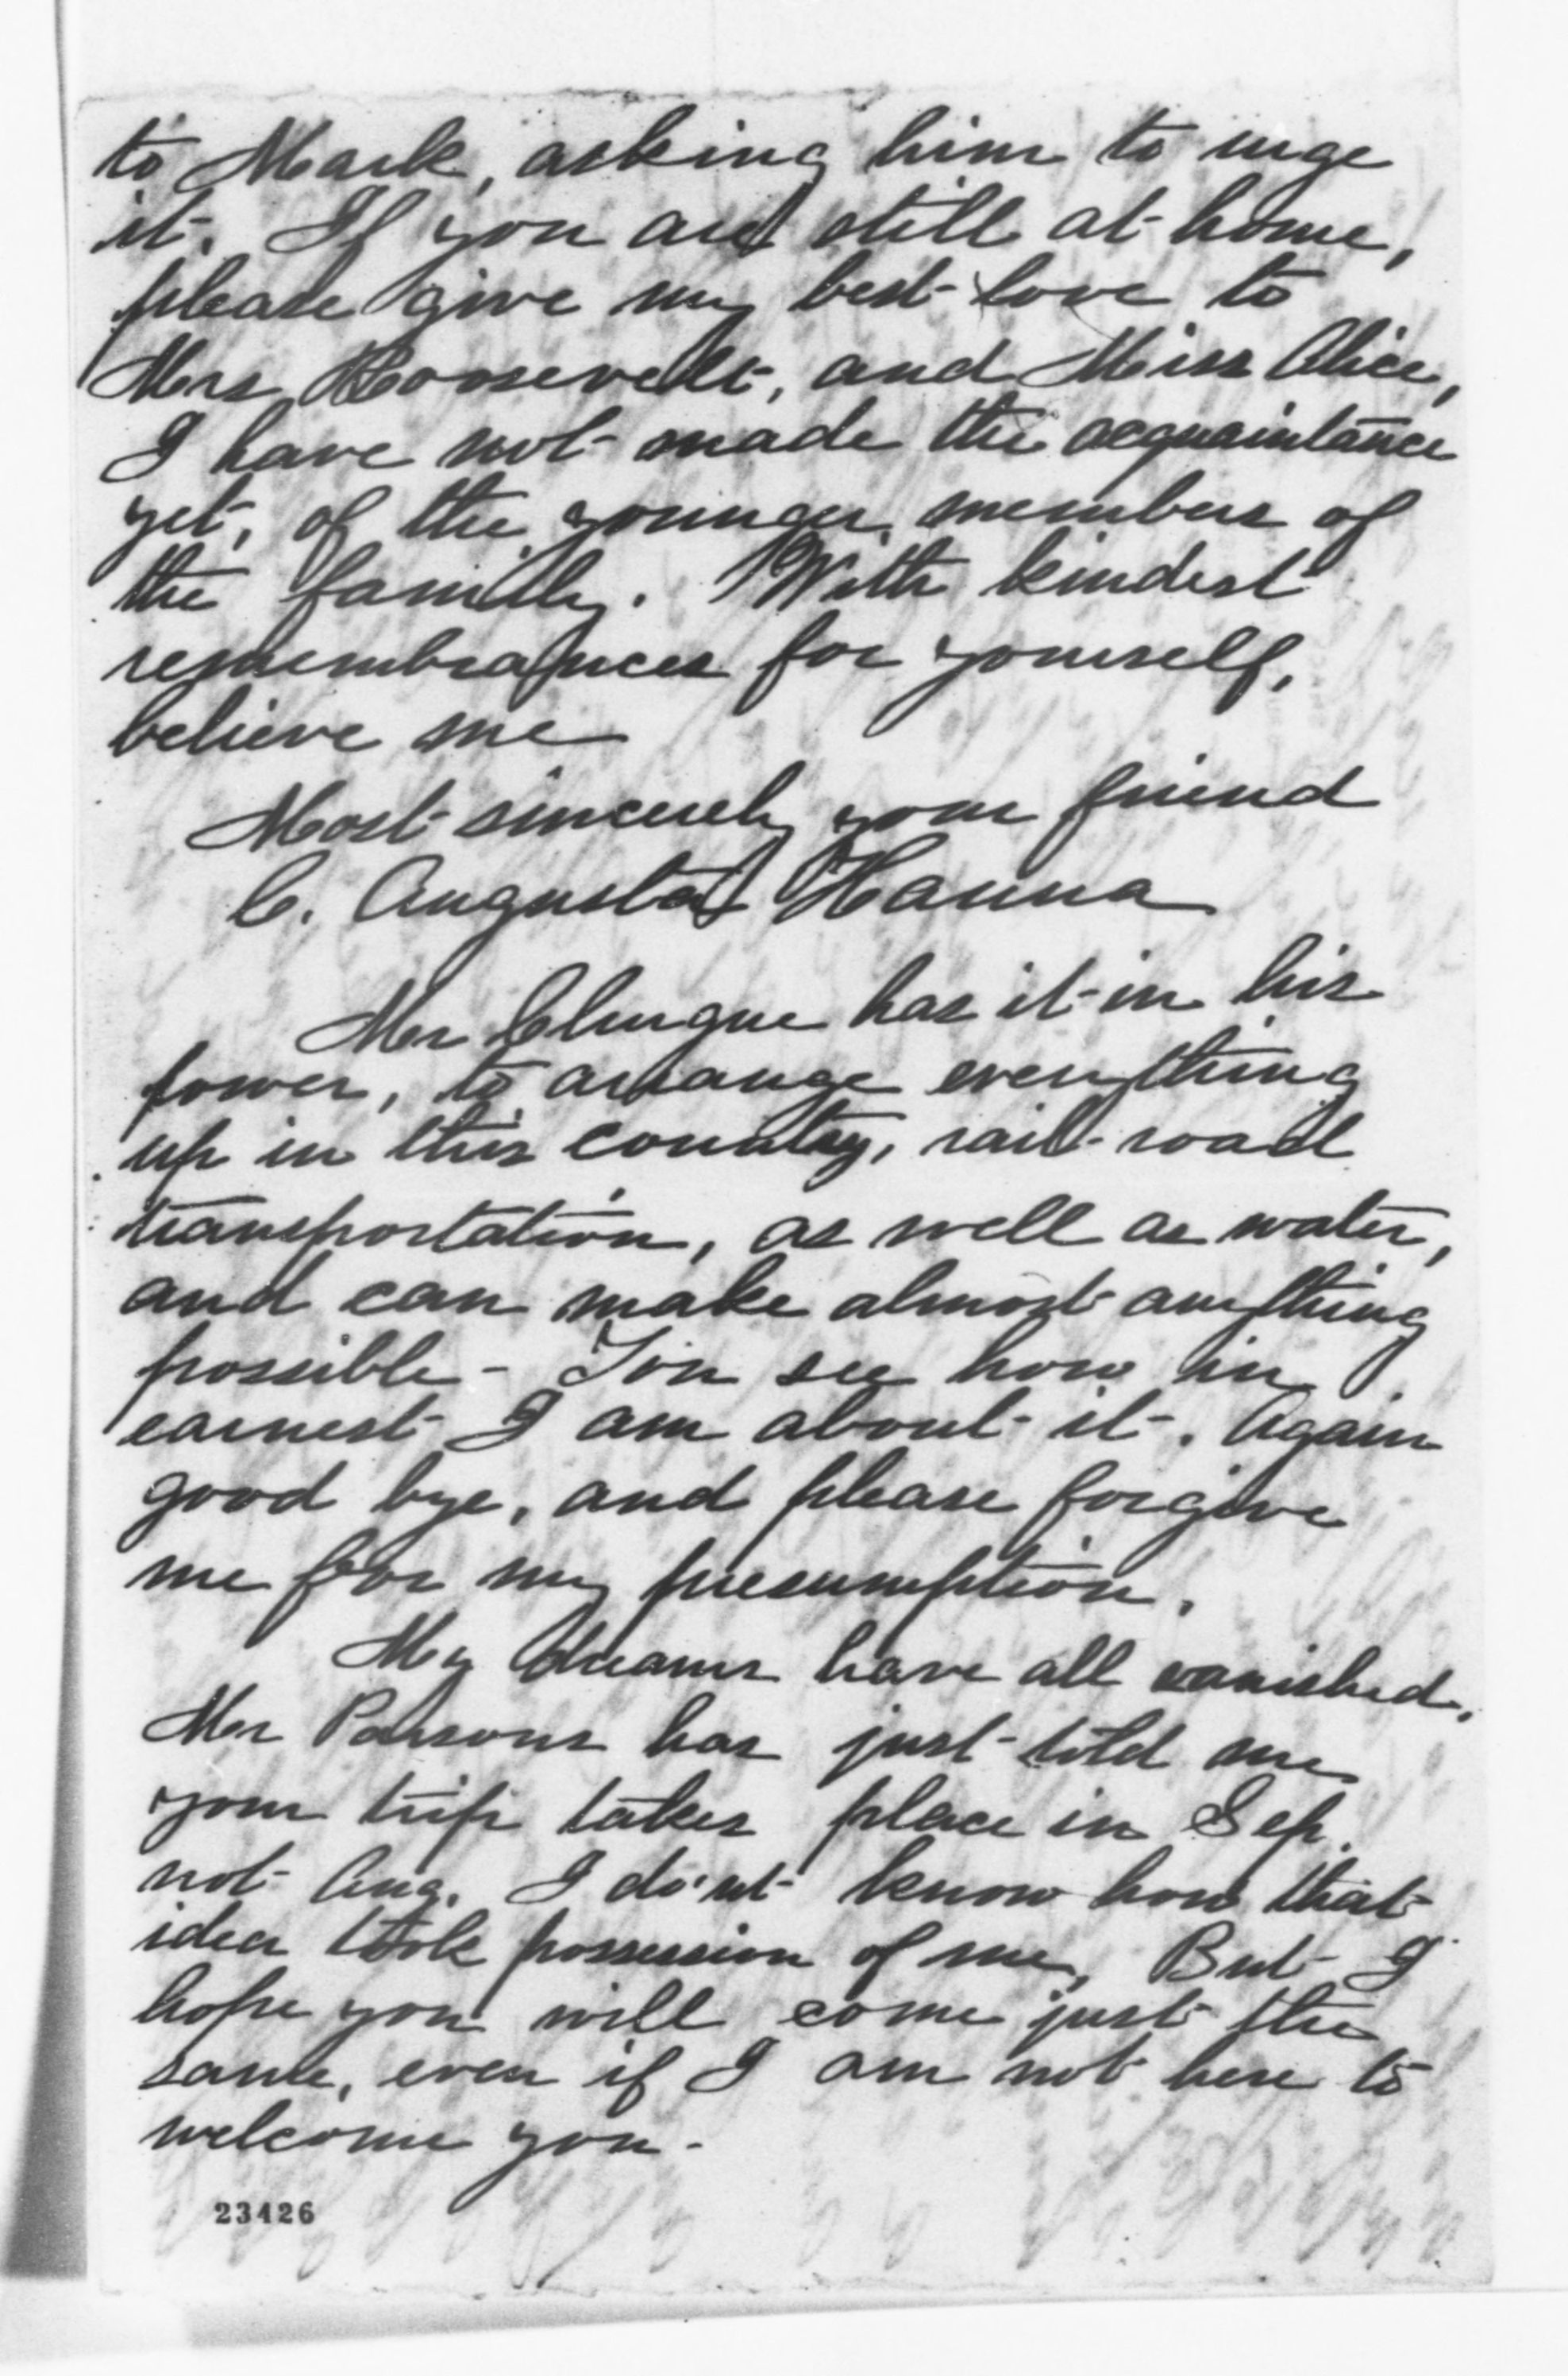 to Mark, asking him to urge
it. If you are still at home,
please give my best love to
Mrs Roosevelt, and Miss Alice,
I have not made the acquaintance
yet, of the younger members of
the family. With kindest
remembrances for yourself,
believe me
Most sincerely your friend
C. Augusta Hanna
Mr Clergue has it in his
power, to arrange everything
up in this country, rail-road
transportation, as well as water,
and can make almost anything
possible - You see how in
earnest I am about it. Again
good bye, and please forgive
me for my presumption.
My dreams have all vanished.
Mr Parsons has just told me
your trip takes place in Sep.
not Aug. I do'nt know how that
idea took possession of me, But I
hope you will come just the
same, even if I am not here to
welcome you.
23426